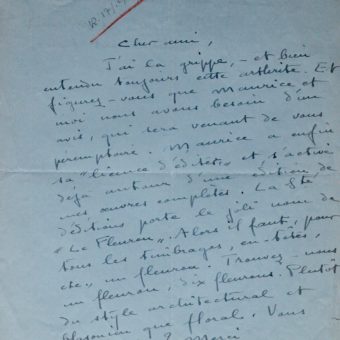 Cher ami,
J'ai la grippe, – et bien
entendu toujours cette arthrite. Et
figurez-vous que Maurice et
moi nous avons besoin d'un
avis, qui sera venant de vous
péremptoire. Maurice a enfin
sa "licence d'éditeur" et s'active
déjà autour d'une édition de
mes œuvres complètes. La Sté
d'éditions porte le joli nom de
"Le Fleuron". Alors il faut, pour
tous les timbrages, en-têtes,
etc" un fleuron. Trouvez-nous
un fleuron, dix fleurons. Plutôt
du style architectural et
que floral. Vous
? Merci